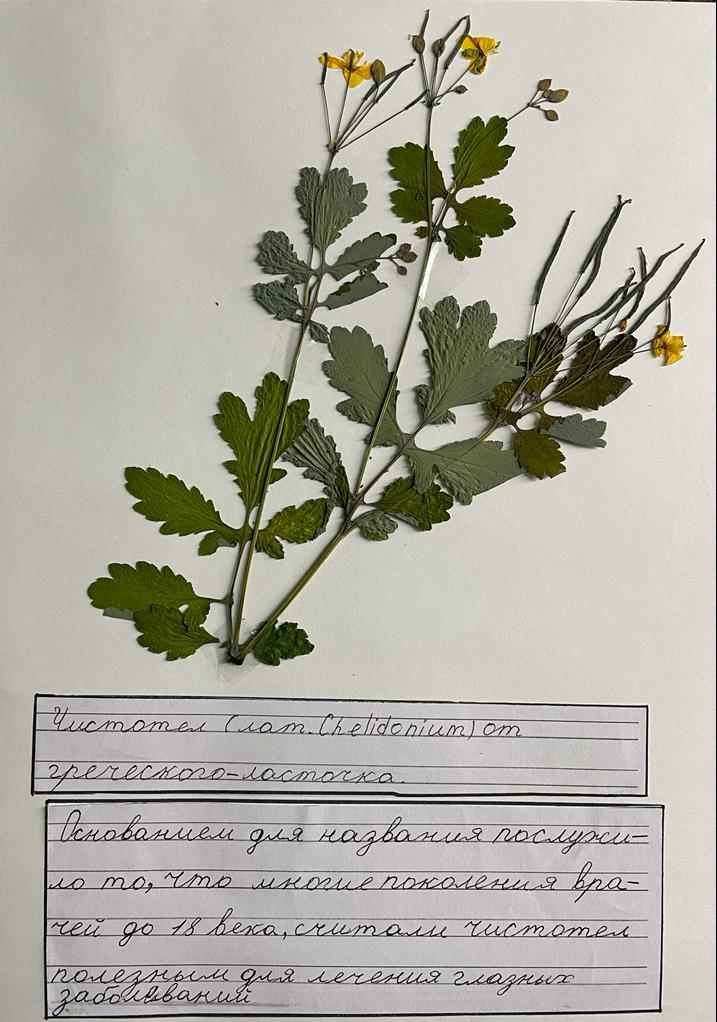 Чистотел (лат. Chelidonium) от
греческого-ласточка.
Основанием для названия послужи-
ло то, что многие поколения вра-
чей до 18 века, считали чистотел
полезным для лечения глазных
заболеваний